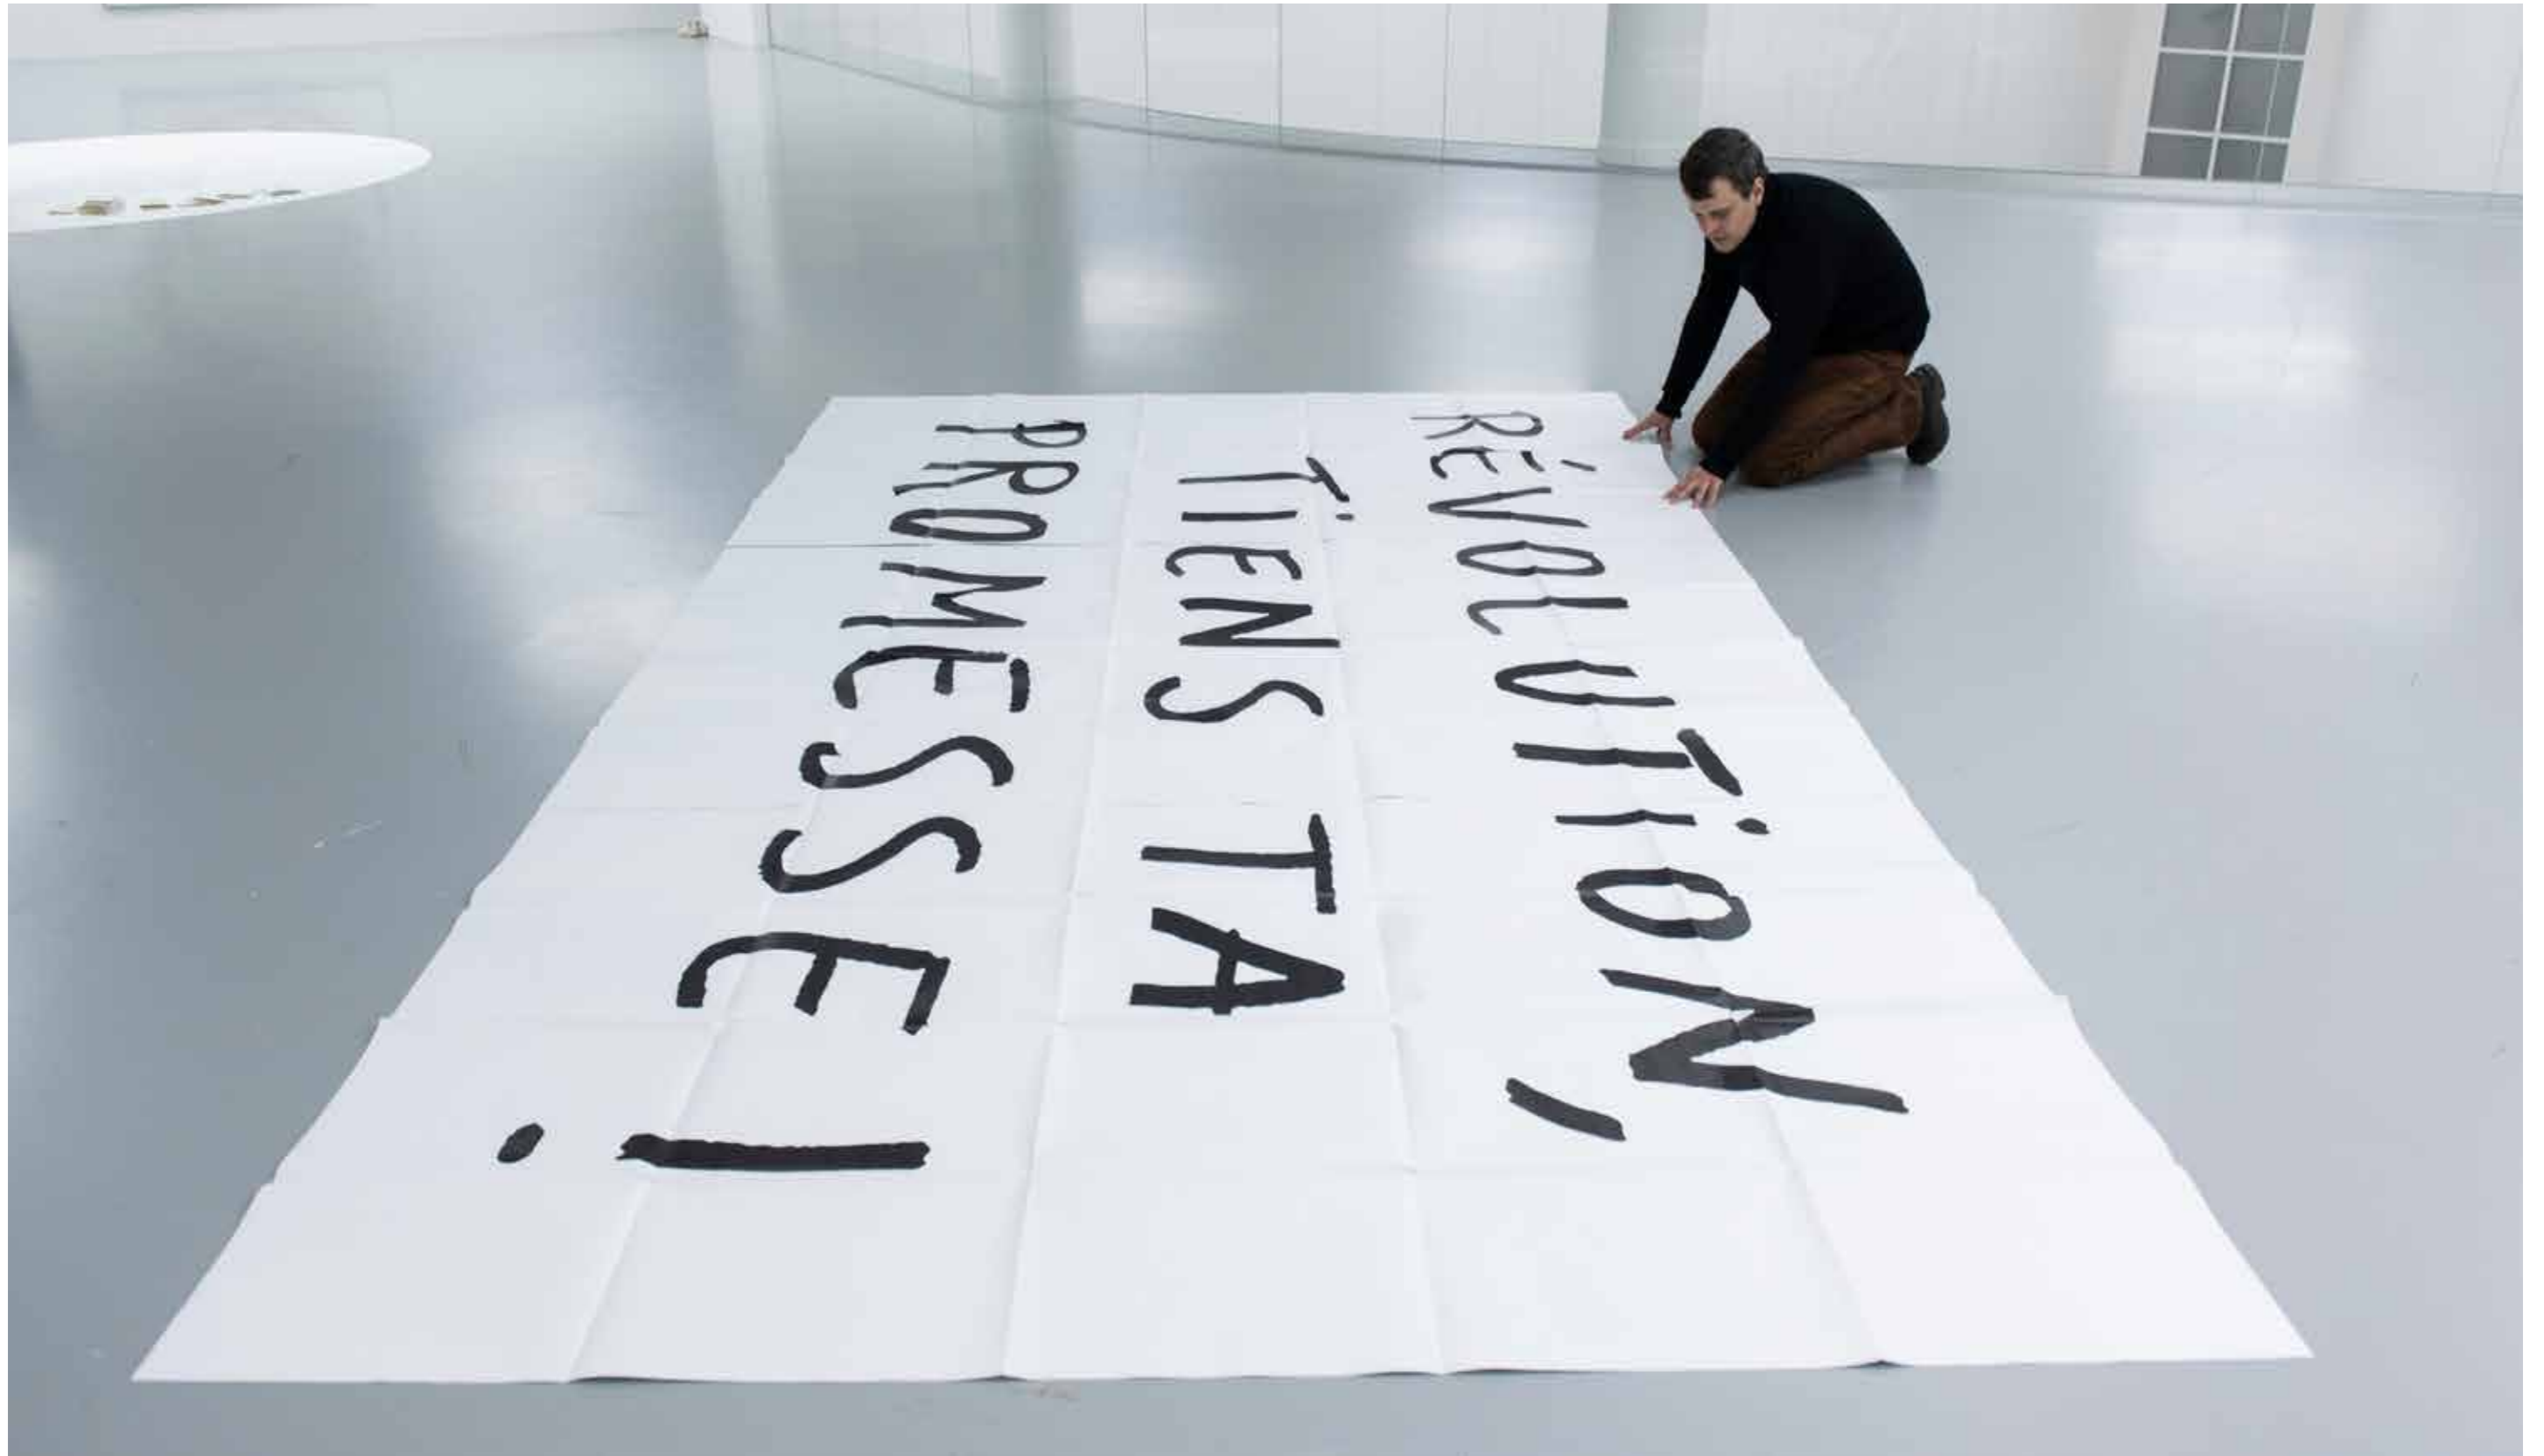 RÉVOLUTiON,
TiENS TA
PROMESSE !